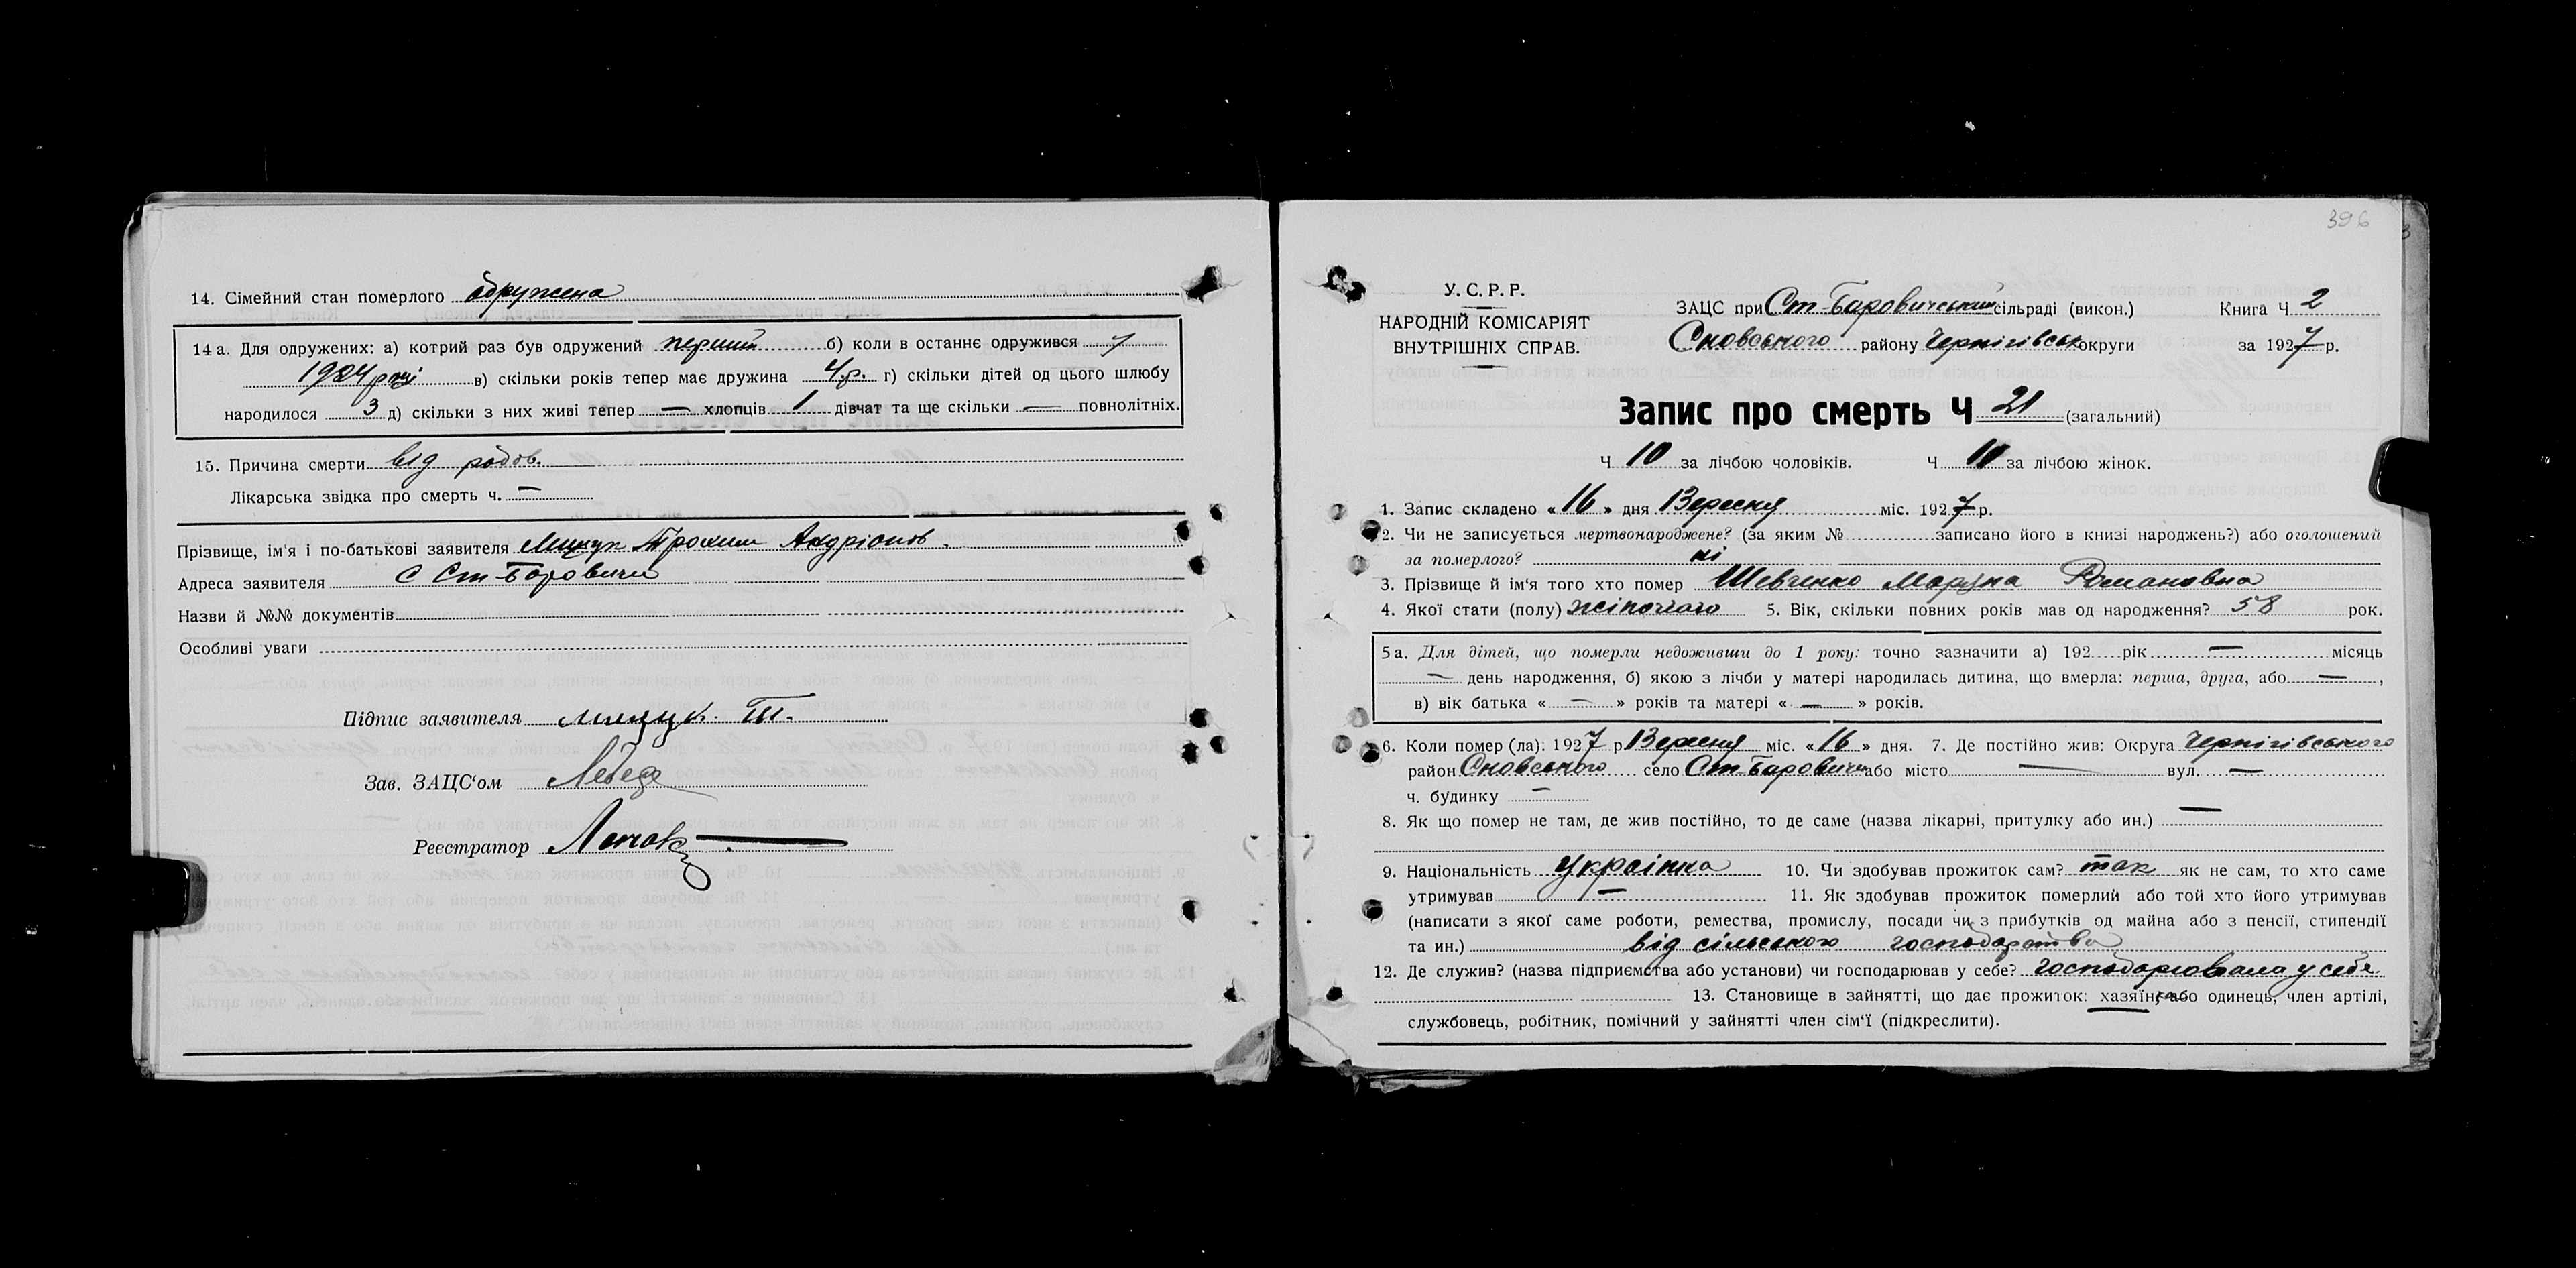 14. Сімейний стан померлого одружена
14а. Для одружених: а) котрий раз був одружений перший б) коли в останнє одружився у
1924 році в) скільки років тепер має дружина 4р. г) скільки дітей од цього шлюбу
народилося 3 д) скільки з них живі тепер — хлопців 1 дівчат та ще скільки — повнолітніх.
15. Причина смерти від родов.
Лікарська звідка про смерть ч. —
Прізвище, ім'я і по-батькові заявителя Мицук Трохим Андріянов.
Адреса заявителя С Ст-Баровичи
Назви й №№ документів
Особливі уваги
Підпис заявителя Мицук. Т.
Зав. ЗАЦС'ом
Реєстратор
396
У. С. Р. Р.
НАРОДНІЙ КОМІСАРІЯТ
ВНУТРІШНІХ СПРАВ.
ЗАЦС при Ст-Баровичський сільраді (викон.) Книга Ч 2
Сновського району Чернігівськ округи за 1927 р.
Запис про смерть Ч 21 (загальний)
Ч 10 за лічбою чоловіків. Ч 11 за лічбою жінок.
1. Запис складено «16» дня Вересня міс. 1927 р.
2. Чи не записується мертвонароджене? (за яким № записано його в книзі народжень?) або оголошений
за померлого? ні
3. Прізвище й ім'я того хто помер Шевченко Марина Романовна
4. Якої стати (полу) жіночого 5. Вік, скільки повних років мав од народження? 58 рок.
5а. Для дітей, що померли недоживши до 1 року: точно зазначити а) 192 рік — місяць
— день народження, б) якою з лічби у матері народилась дитина, що вмерла: перша, друга, або —,
в) вік батька «—» років та матері «—» років.
6. Коли помер (ла): 1927 р Вересня міс. «16» дня. 7. Де постійно жив: Округа Чернігівського
район Сновського село Ст-Баровичи або місто — вул. —
ч. будинку —
8. Як що помер не там, де жив постійно, то де саме (назва лікарні, притулку або ин.) —
9. Національність українка 10. Чи здобував прожиток сам? так як не сам, то хто саме
утримував — 11. Як здобував прожиток померлий або той хто його утримував
(написати з якої саме роботи, ремества, промислу, посади чи з прибутків од майна або з пенсії, стипендії
та ин.) від сільського господарства
12. Де служив? (назва підприємства або установи) чи господарював у себе? господарювала у себе
13. Становище в зайнятті, що дає прожиток: хазяїн, або одинець, член артілі,
службовець, робітник, помічний у зайнятті член сім'ї (підкреслити).